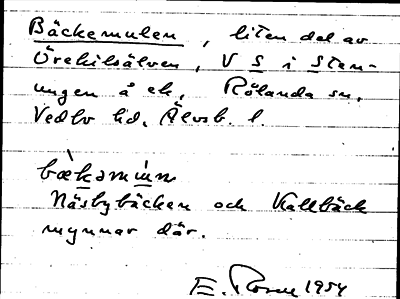 Bäckemulen, liten del av
Örekilsälven, V S i Sten-
ungen å ek, Rölanda sn,
Vedbo hd, Älvsb. l.
bæ̀kəmúln
Näsbybäcken och Kallbäck
mynnar där.
E. Rosen 1954